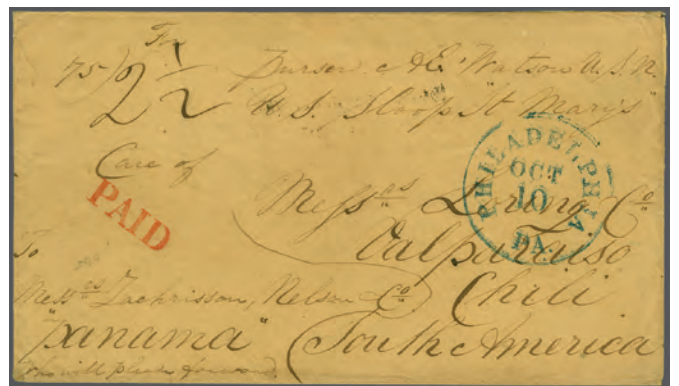 For
75) 2 1/2
Purser J. E. Watson U.S.N.
U.S. Sloop St Marys
Care of
PAID
PHILADELPHIA
OCT
10
PA.
Messrs Loring & Co
Valparaiso
Chili
South America
To
Messrs Zachrisson, Nelson & Co
"Panama"
who will please forward